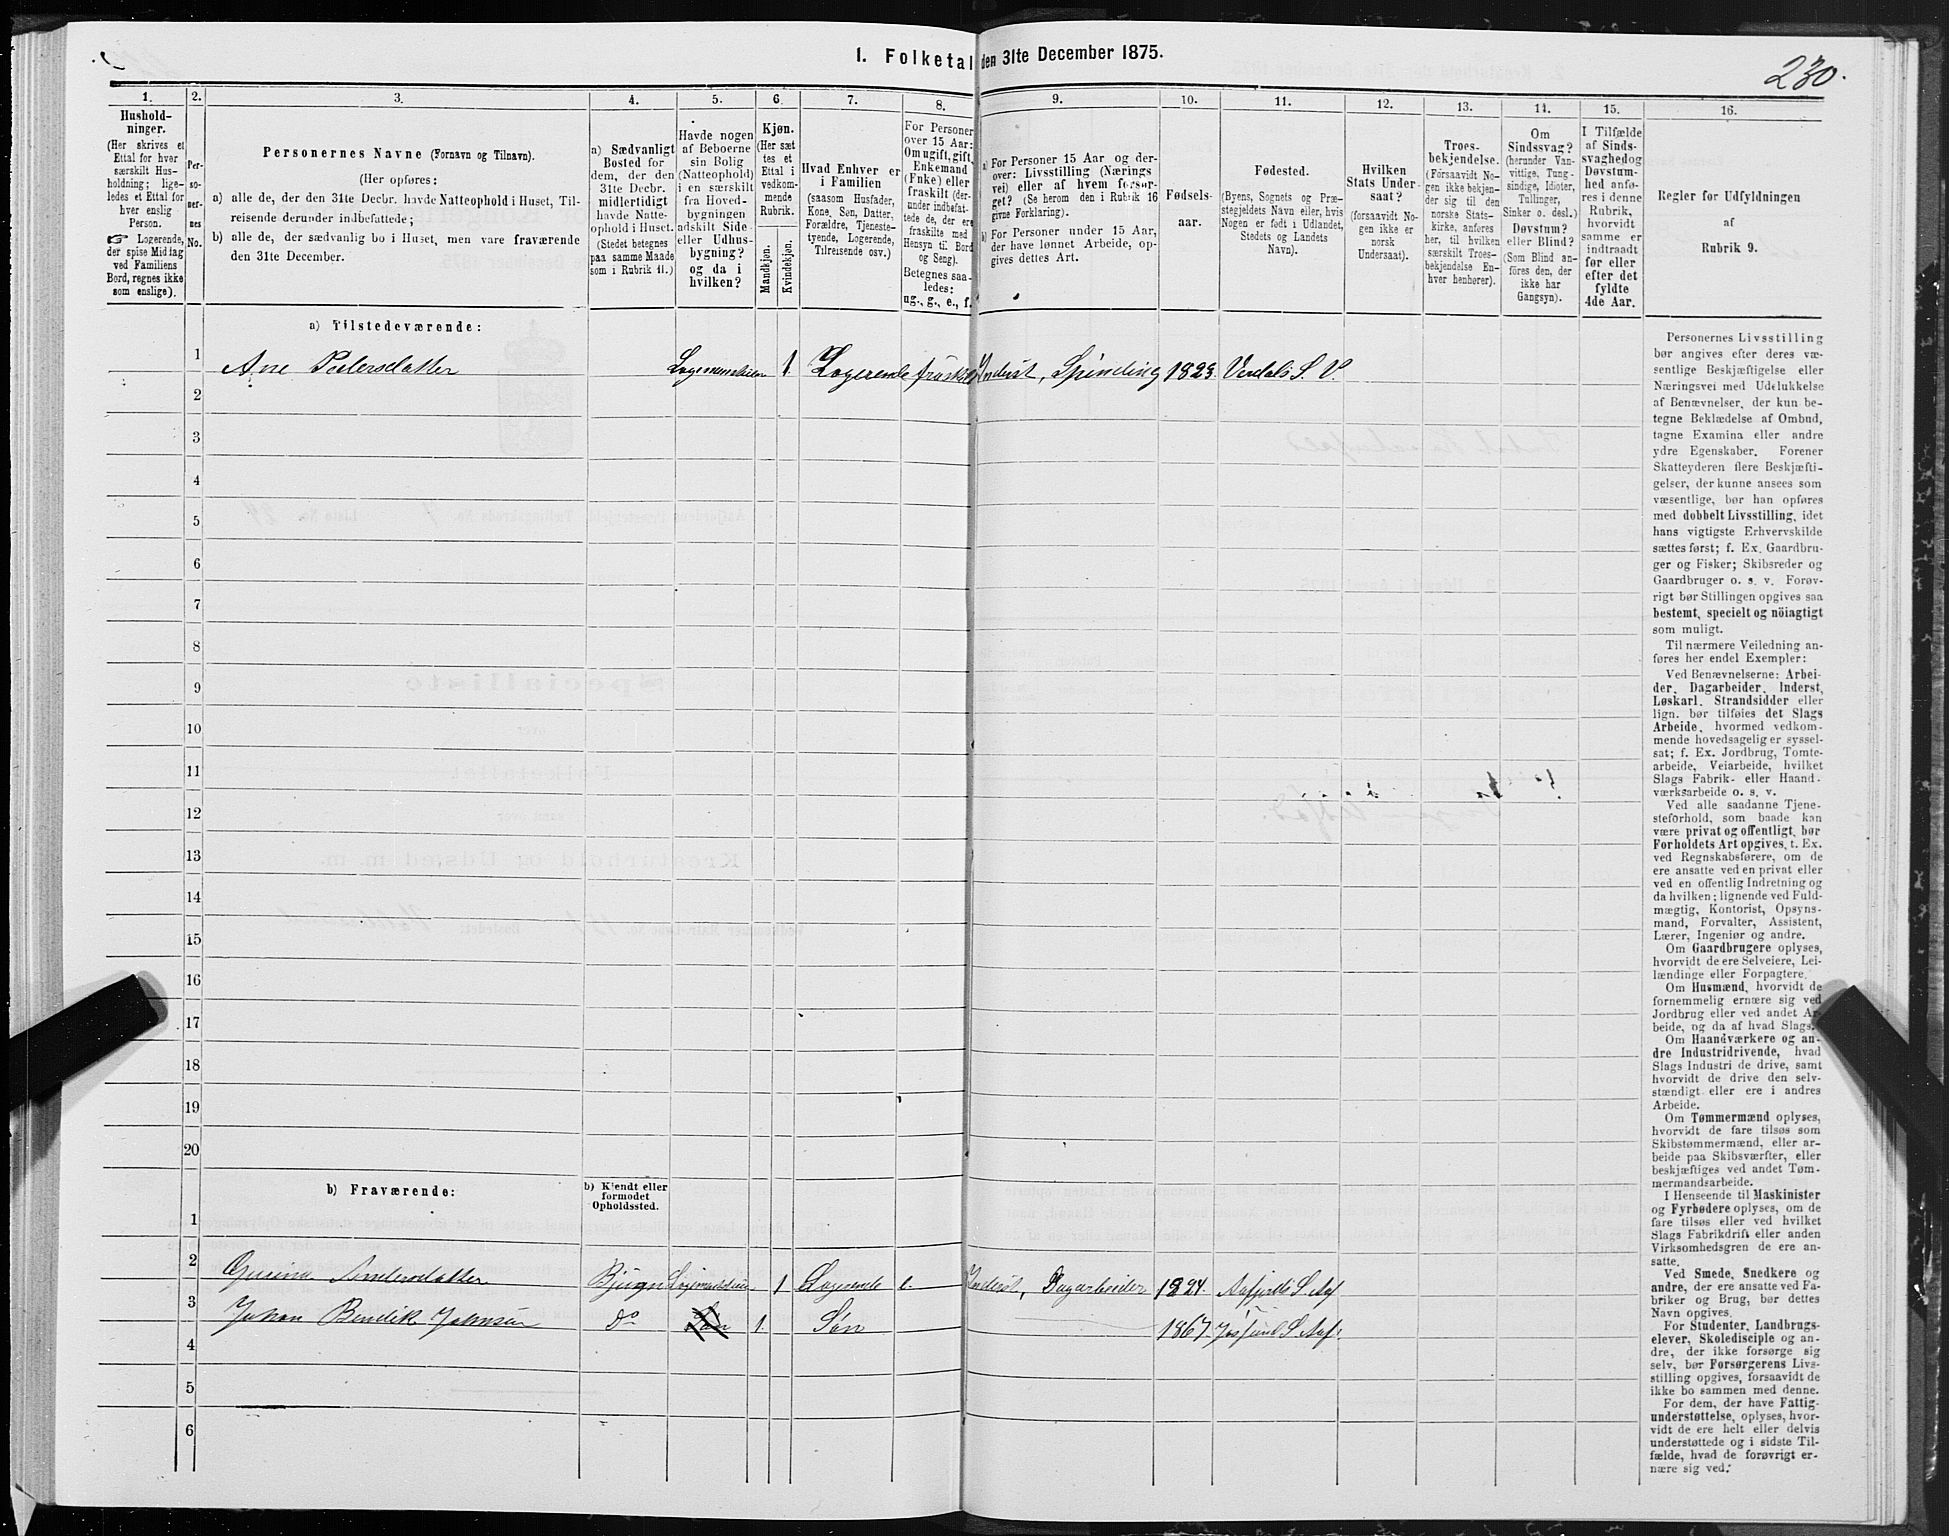 1. Folketal den 31te December 1875.
230.
1.
Hushold-
ninger.
(Her skrives et
Ettal for hver
særskilt Hus-
holdning; lige-
ledes et Ettal for
hver enslig
Person.
☞ Logerende,
der spise Middag
ved Familiens
Bord, regnes ikke
som enslige).
2.
Per-
so-
ner-
nes
No.
3.
Personernes Navne (Fornavn og Tilnavn).
(Her opføres:
a) alle de, der den 31te Decbr. havde Natteophold i Huset, Til-
reisende derunder indbefattede;
b) alle de, der sædvanlig bo i Huset, men vare fraværende
den 31te December.
4.
a) Sædvanligt
Bosted for
dem, der den
31te Decbr.
midlertidigt
havde Natte-
ophold i Huset.
(Stedet betegnes
paa samme Maade
som i Rubrik 11.)
5.
Havde nogen
af Beboerne
sin Bolig
(Natteophold)
i en særskilt
fra Hoved-
bygningen
adskilt Side-
eller Udhus-
bygning?
og da i
hvilken?
6.
Kjøn.
(Her sæt
tes et
Ettal i
vedkom-
mende
Rubrik.
Mandkjøn.
Kvindekjøn.
7.
Hvad Enhver er
i Familien
(saasom Husfader,
Kone, Søn, Datter,
Forældre, Tjeneste-
tyende, Logerende,
Tilreisende osv.)
8.
For Personer
over 15 Aar:
Om ugift, gift,
Enkemand
(Enke) eller
fraskilt (der-
under indbefat-
tede de, der ere
fraskilte med
Hensyn til Bord
og Seng).
Betegnes saa-
ledes:
ug., g., e., f.
9.
a) For Personer 15 Aar og der-
over: Livsstilling (Nærings
vei) eller af hvem forsør-
get? (Se herom den i Rubrik 16
givne Forklaring).
b) For Personer under 15 Aar,
der have lønnet Arbeide, op-
gives dettes Art.
10.
Fødsels-
aar.
11.
Fødested.
(Byens, Sognets og Præ-
stegjeldets Navn eller, hvis
Nogen er født i Udlandet,
Stedets og Landets
Navn).
12.
Hvilken
Stats Under-
saat?
(forsaavidt No-
gen ikke er
norsk
Undersaat).
13.
Troes-
bekjendelse.
(Forsaavidt No-
gen ikke bekjen-
der sig til den
norske Stats-
kirke, anføres
her, til hvilken
særskilt Troes-
bekjendelse En-
hver henhører).
14.
Om
Sindssvag?
(herunder Van-
vittige, Tung-
sindige, Idioter,
Tullinger,
Sinker o. desl.)
Døvstum?
eller Blind?
(Som Blind an-
føres den, der
ikke har
Gangsyn).
15.
I Tilfælde
af Sinds-
svaghedog
Døvstum-
hed anfø-
res i denne
Rubrik,
hvorvidt
samme er
indtraadt
før eller
efter det
fyldte
4de Aar.
16.
Regler for Udfyldningen
af
Rubrik 9.
a) Tilstedeværende:
1 Ane Pedersdatter 1 Logerende fraskilt Inderst, Spinding 1823. Verdals S. V.
2
3
4
5
6
7
8
9
10
11
12
13
14
15
16
17
18
19
20
b) Fraværende:
b) Kjendt eller
formodet
Opholdssted.
1
2 Gurina Andersdatter Bjugn 1 Logerende e. Inderst, Dagarbeider 1824. Aafjords S. Aaf
3 Johan Bendik Johnsen do Søn 1. Søn 1867. Jøssund S. Aaf.
4
5
6
Personernes Livsstilling
bør angives efter deres væ-
sentlige Beskjæftigelse eller
Næringsvei med Udelukkelse
af Benævnelser, der kun be-
tegne Beklædelse af Ombud,
tagne Examina eller andre
ydre Egenskaber. Forener
Skatteyderen flere Beskjæfti-
gelser, der kunne ansees som
væsentlige, bør han opføres
med dobbelt Livsstilling, idet
hans vigtigste Erhvervskilde
sættes først; f. Ex. Gaardbru-
ger og Fisker; Skibsreder og
Gaardbruger o. s. v. Forøv-
rigt bør Stillingen opgives saa
bestemt, specielt og nöiagtigt
som muligt.
Til nærmere Veiledning an-
føres her endel Exempler:
Ved Benævnelserne: Arbei-
der, Dagarbeider, Inderst,
Løskarl, Strandsidder eller
lign. bør tilføies det Slags
Arbeide, hvormed vedkom-
mende hovedsagelig er syssel-
sat; f. Ex. Jordbrug, Tomte-
arbeide, Veiarbeide, hvilket
Slags Fabrik- eller Haand-
værksarbeide o. s. v.
Ved alle saadanne Tjene-
steforhold, som baade kan
være privat og offentligt, bør
Forholdets Art opgives, t. Ex.
ved Regnskabsførere, om de
ere ansatte ved en privat eller
ved en offentlig Indretning og
da hvilken; lignende ved Fuld-
mægtig, Kontorist, Opsyns-
mand, Forvalter, Assistent,
Lærer, Ingeniør og andre.
Om Gaardbrugere oplyses,
hvorvidt de ere Selveiere, Lei-
lændinge eller Forpagtere.
Om Husmænd, hvorvidt de
fornemmelig ernære sig ved
Jordbrug eller ved andet Ar-
beide, og da af hvad Slags.
Om Haandværkere og an-
dre Industridrivende, hvad
Slags Industri de drive, samt
hvorvidt de drive den selv-
stændigt eller ere i andres
Arbeide.
Om Tømmermænd oplyses,
hvorvidt de fare tilsøs som
Skibstømmermænd, eller ar-
beide paa Skibsværfter, eller
beskjæftiges ved andet Tøm-
mermandsarbeide.
I Henseende til Maskinister
og Fyrbødere oplyses, om de
fare tilsøs eller ved hvilket
Slags Fabrikdrift eller anden
Virksomhedsgren de ere an-
satte.
Ved Smede, Snedkere og
andre, der ere ansatte ved Fa-
briker og Brug, bør dettes
Navn opgives.
For Studenter, Landbrugs-
elever, Skoledisciple og an-
dre, der ikke forsørge sig
selv, bør Forsørgerens Livs-
stilling opgives, forsaavidt de
ikke bo sammen med denne.
For dem, der have Fattig-
understøttelse, oplyses, hvor-
vidt de ere helt eller delvis
understøttede og i sidste Til-
fælde, hvad de forøvrigt er-
nære sig ved.